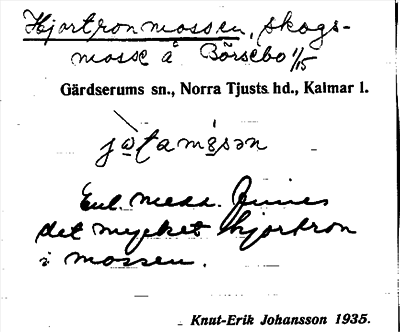 Hjortronmossen, skogs-
mosse å Börsebo 1/15
Gärdserums sn., Norra Tjusts hd., Kalmar l.
Enl. medd. finnes
det mycket hjortron
i mossen.
Knut-Erik Johansson 1935.